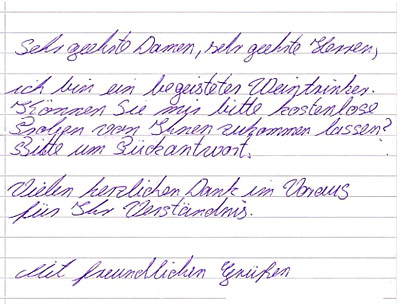 Sehr geehrte Damen, sehr geehrte Herren,
ich bin ein begeisteter Weintrinker.
Können Sie mir bitte kostenlose
Proben von Ihnen zukommen lassen?
Bitte um Rückantwort.
Vielen herzlichen Dank im Voraus
für Ihr Verständnis.
Mit freundlichen Grüßen